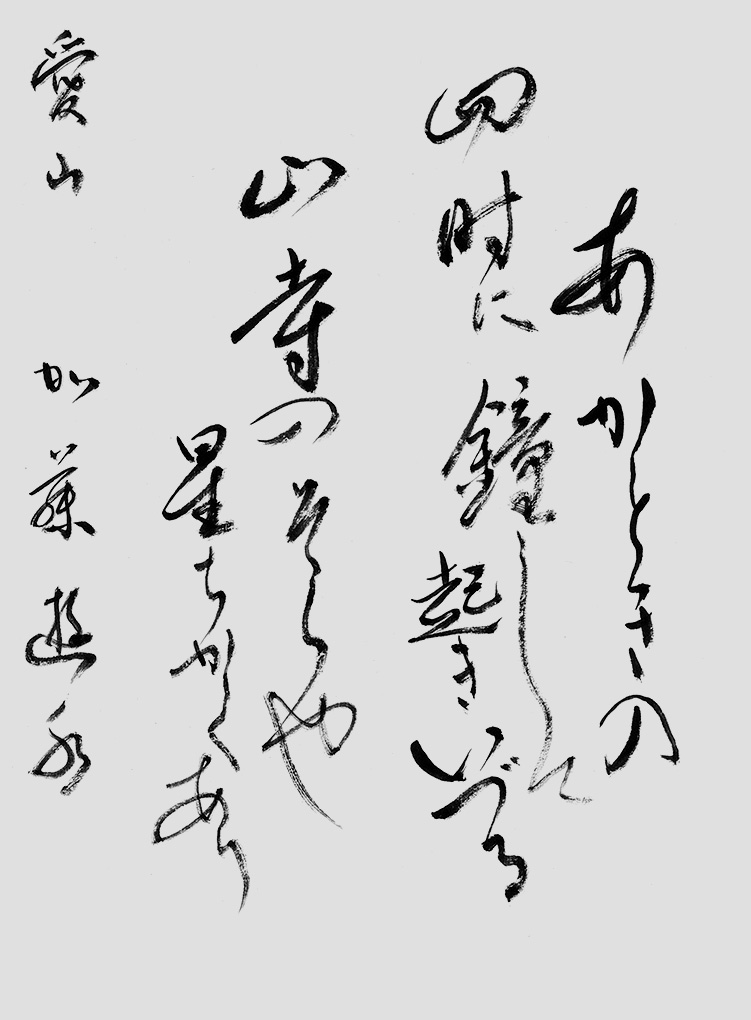 あかときの
四時に鐘して
起きいづる
山寺のそらや
星ちかくあり
愛山 加藤遊水